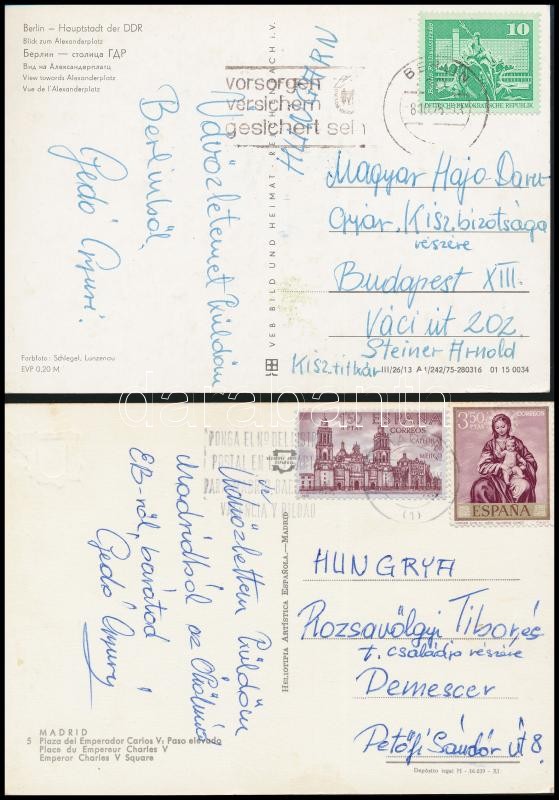 Berlin – Hauptstadt der DDR
Blick zum Alexanderplatz
Берлин — столица ГДР
Вид на Александерплатц
View towards Alexanderplatz
Vue de l'Alexanderplatz
vorsorgen
versichern
gesichert sein
10
DEUTSCHE DEMOKRATISCHE REPUBLIK
Üdvözletemet küldöm
Berlinből,
Gedó Gyuri.
VEB BILD UND HEIMAT · REICHENBACH I. V.
Magyar Hajo-Daru
Gyár, Kisz. bizotsága
részére
Budapest XIII.
Váci út 202.
Steiner Arnold
Kisz. titkár
Farbfoto: Schlegel, Lunzenau
EVP 0,20 M
III/26/13 A 1/242/75-280316 01 15 0034
darabanth
PONGA EL Nº DEL DISTRITO
POSTAL EN
VALENCIA Y BILBAO
CORREOS
3,50
PTAS
CORREOS
ESPAÑA
Üdvözlettem küldöm
Madridból az
EB-ről, barátod
Gedó Gyury
HELIOTIPIA ARTÍSTICA ESPAÑOLA.—MADRID
HUNGRYA
Rozsavölgyi Tibor és
t. családja részére
Demescer
Petőfi Sándór út 8.
MADRID
5 Plaza del Emperador Carlos V: Paso elevado
Place du Empereur Charles V
Emperor Charles V Square
Depósito legal M - 16.039 - XI